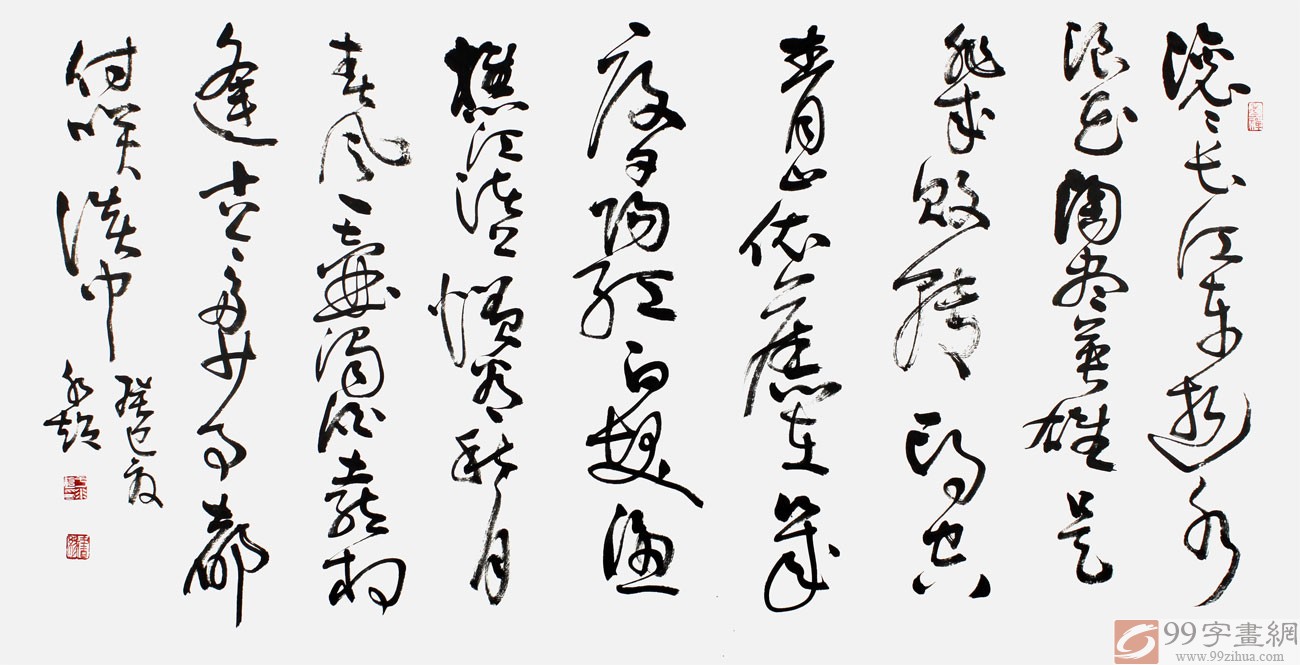 滚滚长江东逝水
浪花淘尽英雄是
非成败转头空
青山依旧在几
度夕阳红白发渔
樵江渚上惯看秋月
春风一壶浊酒喜相
逢古今多少事都
付笑谈中
癸巳夏
99字畫網
www.99zihua.com